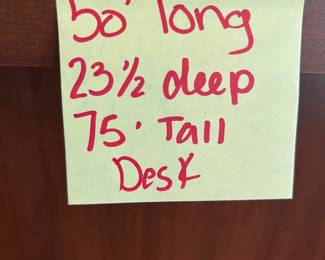 50' long
23 1/2 deep
75' Tall
Desk